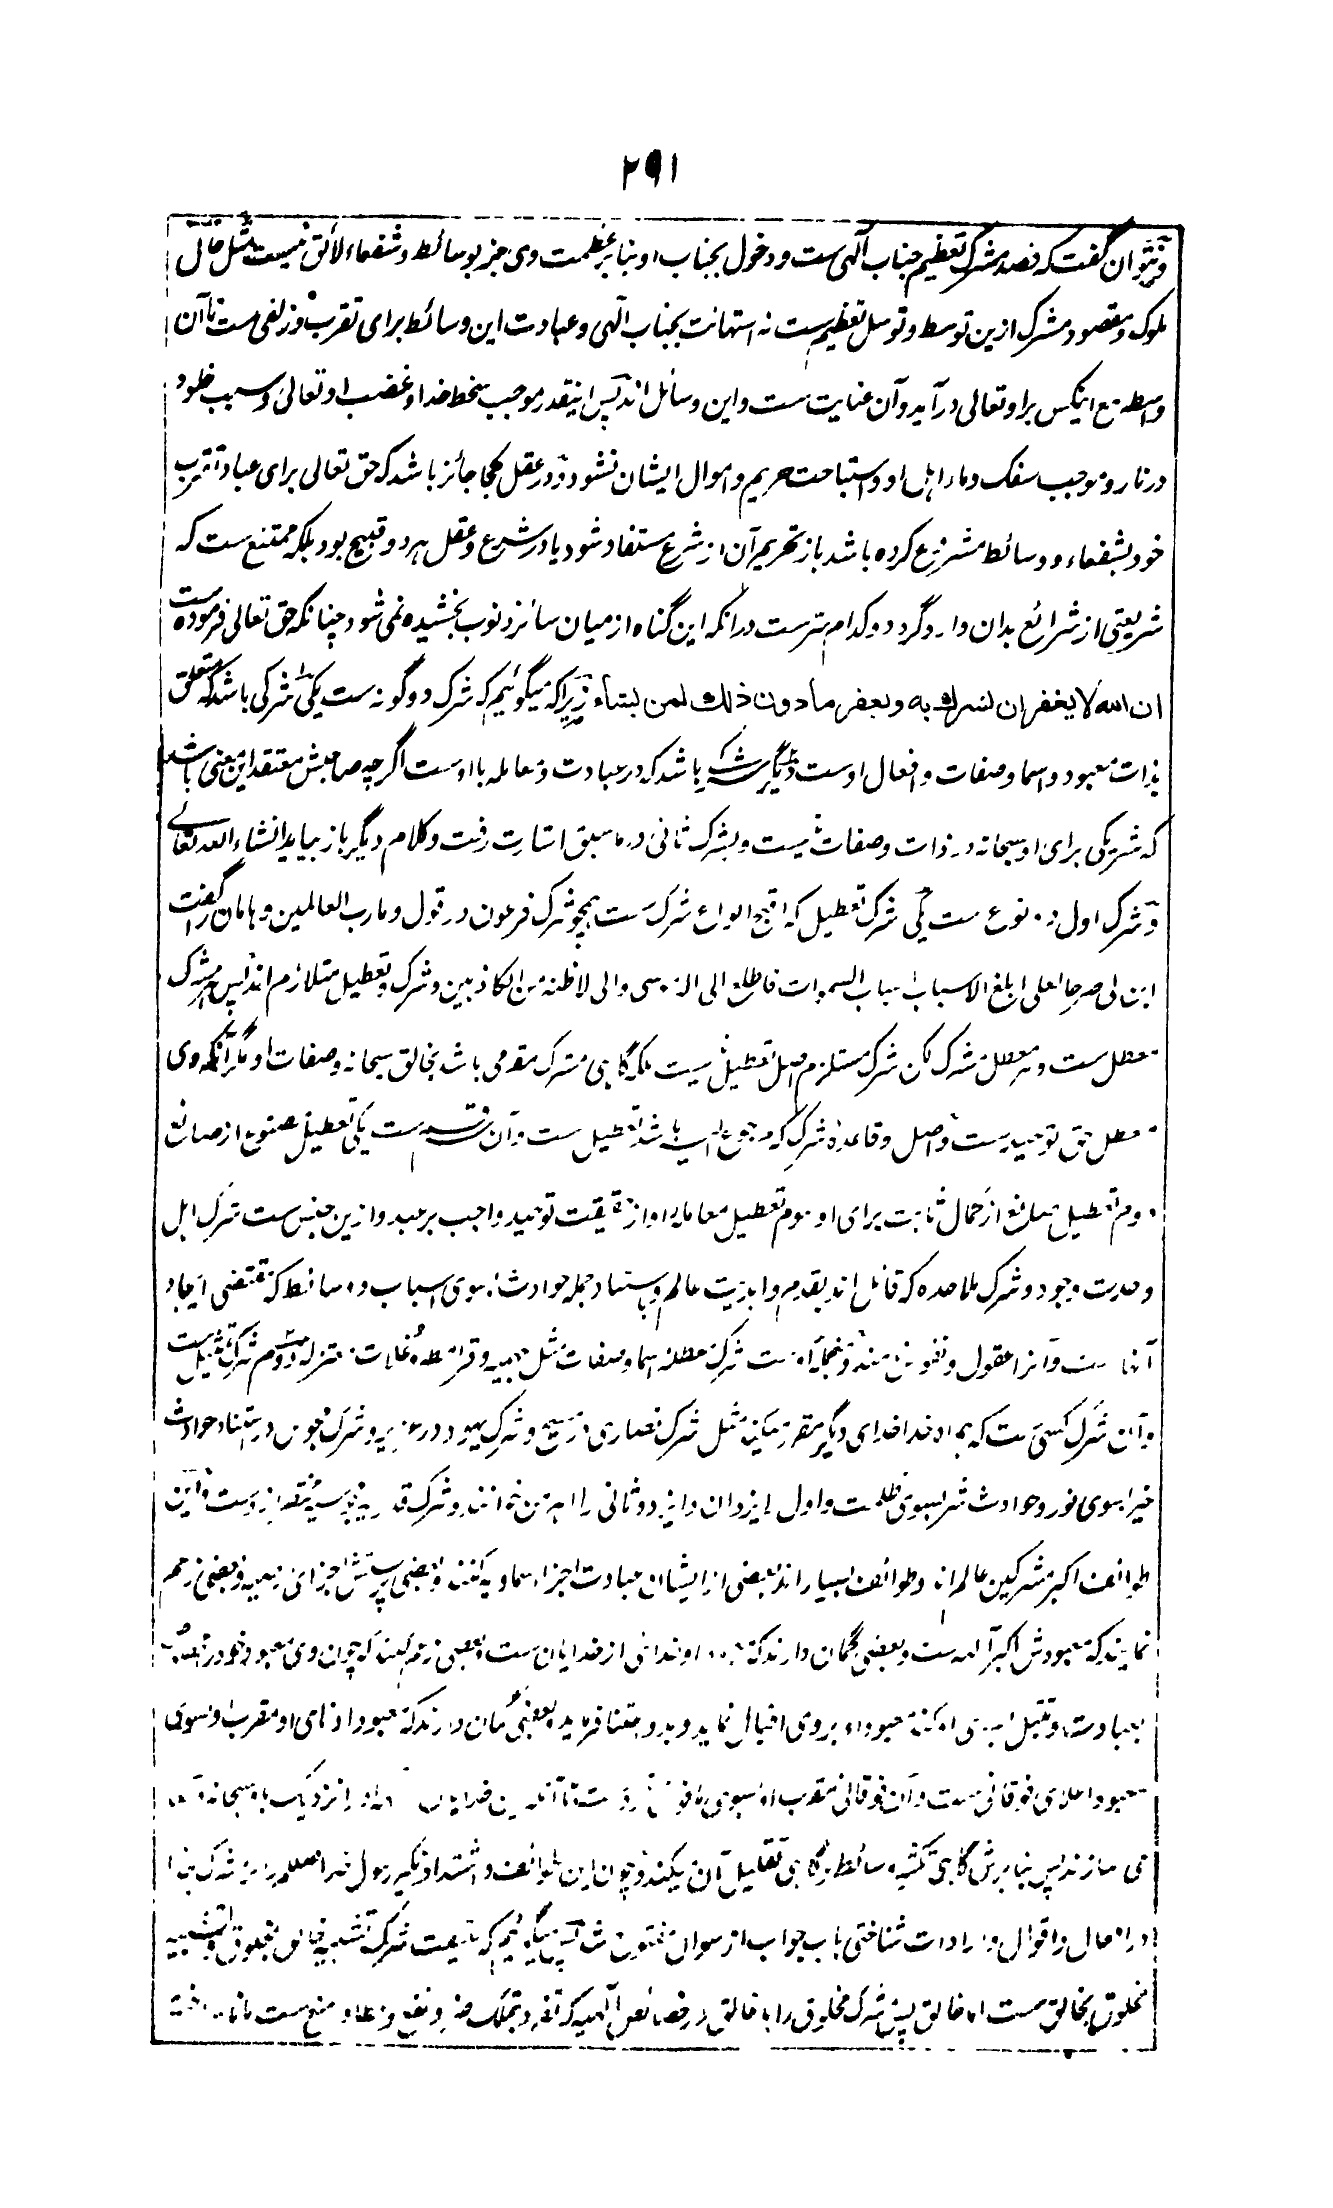 ۲۹۱
و نتوان گفت که قصد مشرک تعظیم جناب آلهی ست و دخول بجناب او بنا بر عظمت وی جز بوسائط و شفعاء لائق نیست مثل حال
ملوک و مقصود مشرک ازین توسط و توسل تعظیم ست نه استهانت بجناب الهی و عبادت این وسائط برای تقرب و زلفی ست تا آن
واسطه مع اینکس بر او تعالی در آید و آن غنایت ست و این وسائل اند پس اینقدر موجب سخط خدا و غضب او تعالی و سبب خلود
در نار و موجب سفک دماء اهل او و استباحت حریم و اموال ایشان نشود و در عقل کجا جائز باشد که حق تعالی برای عباد تقرب
خود بشفعاء و وسائط مشروع کرده باشد باز تحریم آن از شرع مستفاد شود یا در شرع و عقل هر دو قبیح بود بلکه ممتنع ست که
شریعتی از شرائع بدان وارد گردد و کدام سّر ست در انکه این گناه از میان سائر ذنوب بخشیده نمی شود چنانکه حق تعالی فرموده ست
ان الله لا یغفر ان یشرک به و یغفر ما دون ذلک لمن یشاء زیرا که میگوئیم که شرک دو گونه ست یکی شرکی باشد که متعلق
بذات معبود و اسما و صفات و افعال اوست دیگر شرک باشد که در عبادت و معامله با اوست اگرچه صاحبش معتقد این معنی باشد
که شریکی برای او سبحانه در ذات و صفات نیست و بشرک ثانی در ما سبق اشارت رفت و کلام دیگر باز بیاید انشاء الله تعالے
و شرک اول دو نوع ست یکی شرک تعطیل که اقبح انواع شرک ست همچو شرک فرعون در قول و ما رب العالمین و هامان را گفت
ابن لی صرحا لعلی ابلغ الاسباب اسباب السموات فاطلع الی اله موسی و انی لاظنه من الکاذبین و شرک و تعطیل متلازم اند پس هر مشرک
معطل ست و هر معطل مشرک لکن شرک مستلزم اصل تعطیل نیست بلکه گاهی مشرک مقر می باشد بخالق سبحانه و صفات او مگر آنکه وی
معطل حق توحید ست و اصل و قاعدهٔ شرک که مرجوع الیه باشد تعطیل ست و آن قسم ست یکی تعطیل مصنوع از صانع
دوم تعطیل صانع از کمال ثابت برای او سوم تعطیل معامله او از حقیقت توحید واجب بر عبد و ازین جنس ست شرک اهل
وحدت وجود و شرک ملاحده که قائل اند بقدم و ابدیت عالم و اسناد جمله حوادث بسوی اسباب و وسائط که مقتضی ایجاد
آنها ست و آنرا عقول و نفوس نامند و از جمله آن ست شرک معطله اسما و صفات مثل جهمیه و قرامطه و غلات معتزله دوم شرک تمثیل ست
و آن شرک کسی ست که همراه خدا خدای دیگر مقرر میکند مثل شرک نصاری در مسیح و شرک یهود در عزیر و شرک مجوس در اسناد حوادث
خیر بسوی نور و حوادث شر بسوی ظلمت و اول را یزدان و ایزد و ثانی را اهرمن خوانند و شرک قدریه ست و این
طوائف اکبر مشرکین عالم اند و طوائف بسیار اند بعضی از ایشان عبادت اجزاء سماویه کنند و بعضی پرستش اجزای و بعضی زعم
نمایند که معبودش اکبر آلهه ست و بعضی گمان دارند که او خدائی از خدایان ست و بعضی زعم کنند که چون وی معبود خود را
بعبادت و تبتل کند معبود او بر وی اقبال نماید و بدو اعتنا فرماید و بعضی گمان دارند که معبود ادنای او مقرب او بسوی
معبود اعلای فوقانی ست و آن فوقانی مقرب او بسوی مافوق تا آنکه این خدایان او را نزدیک با و سبحانه
می سازند پس بنا برین گاهی تکثیر وسائط و گاهی تقلیل آن میکند و چون این طوائف و اشتداد نکیر رسول خدا صلعم
در افعال و اقوال و ارادات شناختی باب جواب از سوال مفتوح شد پس میگوئیم که حقیقت شرک تشبیه خالق بمخلوق و تشبیه
مخلوق بخالق ست اما خالق پس مشرک مخلوق را با خالق در خصائص الهیه که تفرد بملک ضر و نفع و عطا و منع ست